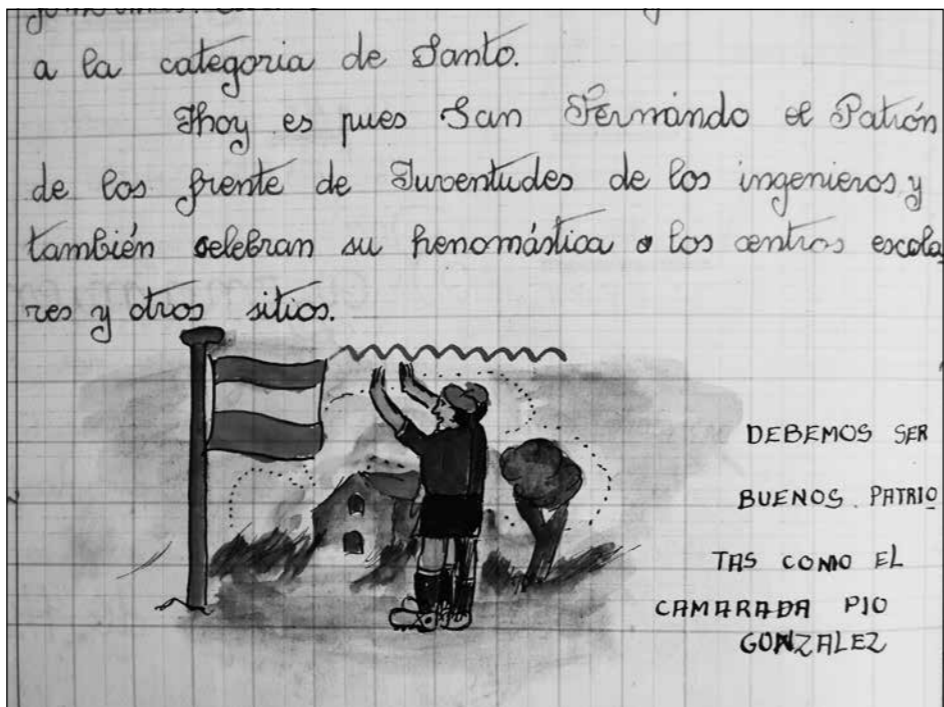 a la categoria de Santo.
Hoy es pues San Fernándo el Patrón
de los frente de Juventudes de los ingenieros y
también celebran su henomástica a los centros escola
res y otros sitios.
DEBEMOS SER
BUENOS PATRIO
TAS COMO EL
CAMARADA PIO
GONZALEZ